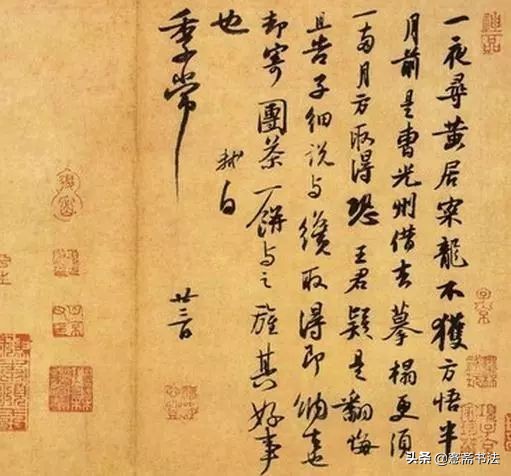 一夜尋黃居寀龍不獲方悟半
月前是曹光州借去摹搨更須
一兩月方取得恐王君疑是翻悔
且告子細說與纔取得即納去
却寄團茶一餅與之旌其好事
也
軾白
季常
廿三日
头条